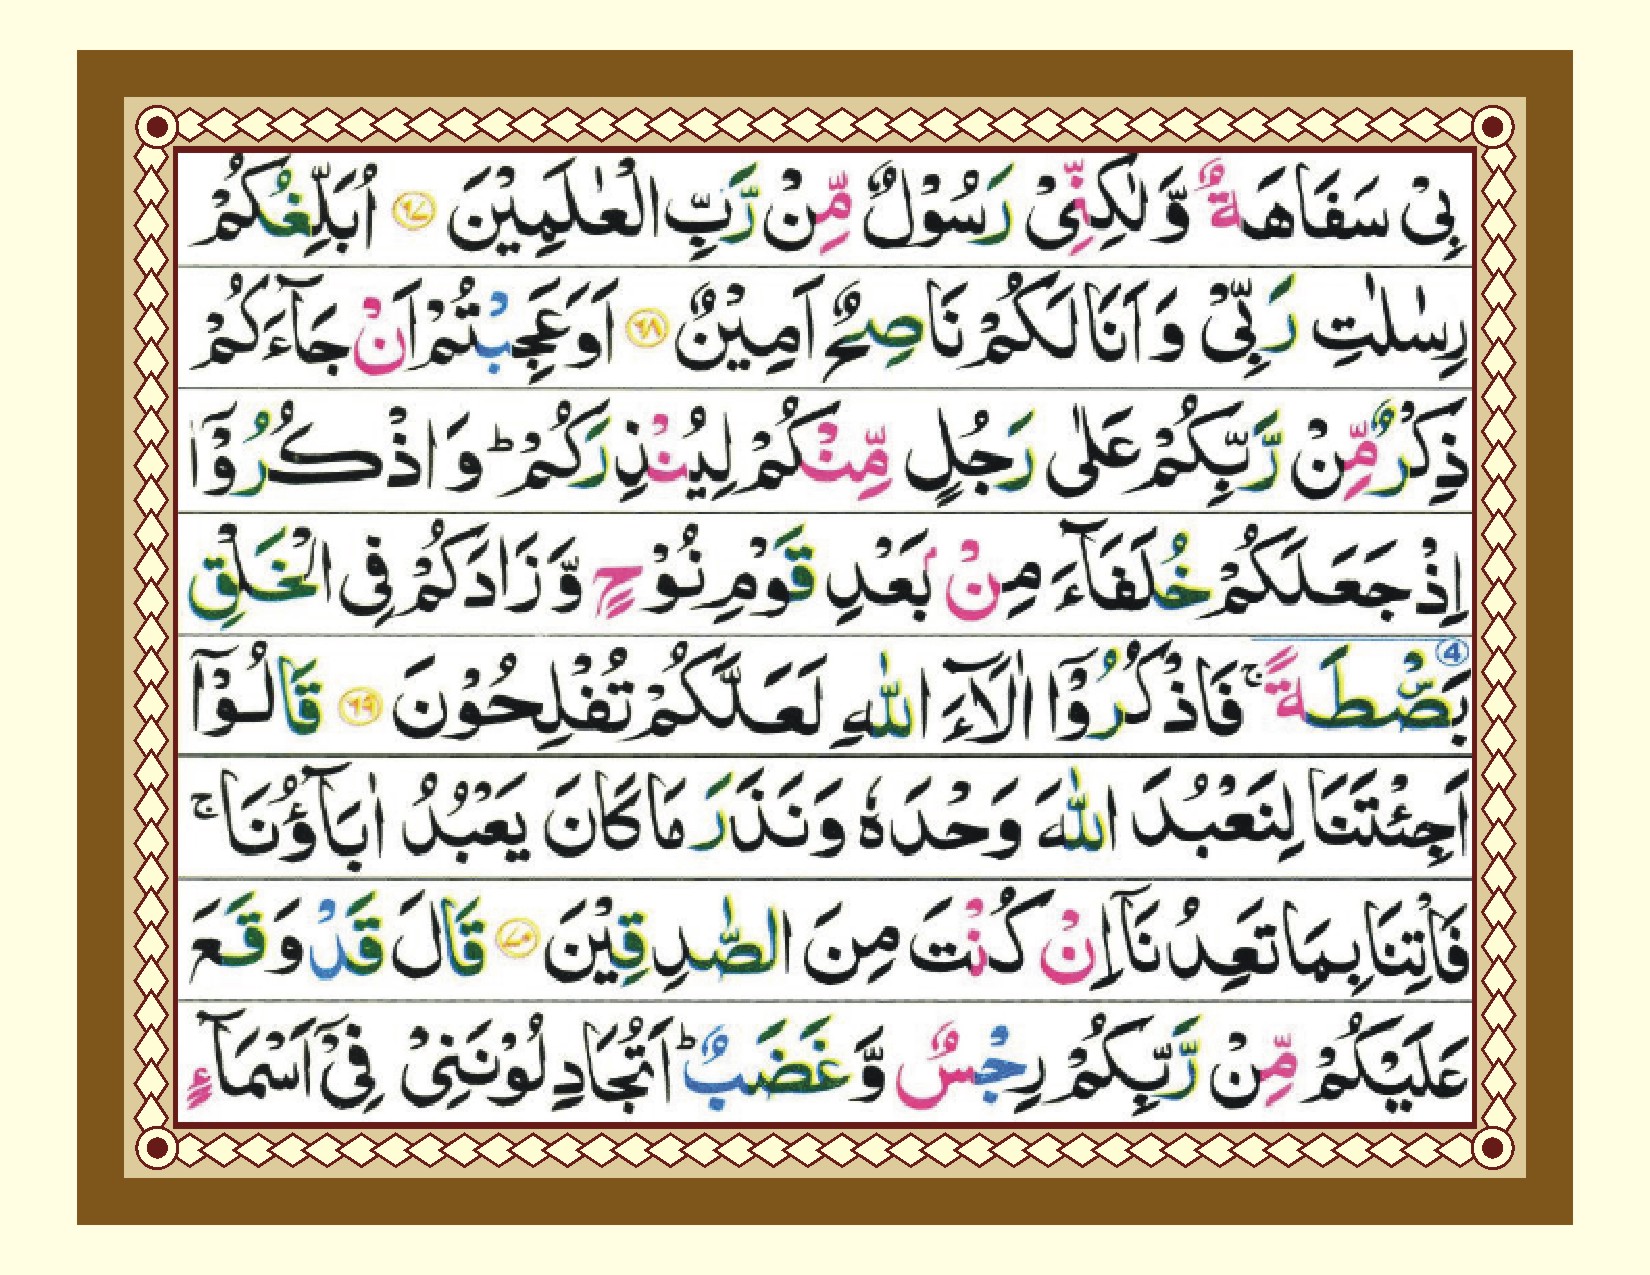 بِیْ سَفَاهَةٌ وَّلٰكِنِّیْ رَسُوْلٌ مِّنْ رَّبِّ الْعٰلَمِیْنَ ﴿۶۷﴾ اُبَلِّغُكُمْ
رِسٰلٰتِ رَبِّیْ وَاَنَا لَكُمْ نَاصِحٌ اَمِیْنٌ ﴿۶۸﴾ اَوَعَجِبْتُمْ اَنْ جَآءَكُمْ
ذِكْرٌ مِّنْ رَّبِّكُمْ عَلٰی رَجُلٍ مِّنْكُمْ لِیُنْذِرَكُمْ ؕ وَاذْكُرُوْۤا
اِذْ جَعَلَكُمْ خُلَفَآءَ مِنْۢ بَعْدِ قَوْمِ نُوْحٍ وَّزَادَكُمْ فِی الْخَلْقِ
بَصْۜطَةً ۚ فَاذْكُرُوْۤا اٰلَآءَ اللّٰهِ لَعَلَّكُمْ تُفْلِحُوْنَ ﴿۶۹﴾ قَالُوْۤا ④
اَجِئْتَنَا لِنَعْبُدَ اللّٰهَ وَحْدَهٗ وَنَذَرَ مَا كَانَ یَعْبُدُ اٰبَآؤُنَا ۚ
فَاْتِنَا بِمَا تَعِدُنَاۤ اِنْ كُنْتَ مِنَ الصّٰدِقِیْنَ ﴿۷۰﴾ قَالَ قَدْ وَقَعَ
عَلَیْكُمْ مِّنْ رَّبِّكُمْ رِجْسٌ وَّغَضَبٌ ؕ اَتُجَادِلُوْنَنِیْ فِیْۤ اَسْمَآءٍ